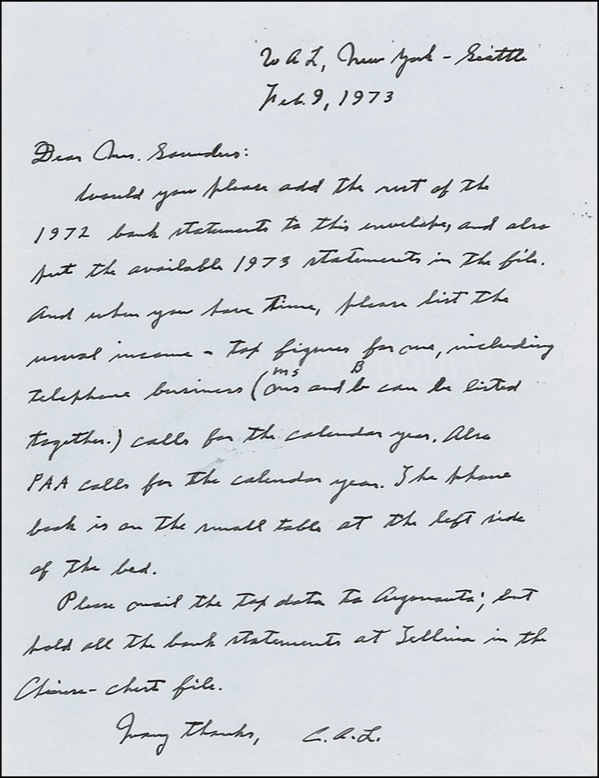 W A L, New York - Seattle
Feb. 9, 1973
Dear Mrs. Saunders:
Would you please add the rest of the
1972 bank statements to this envelope, and also
put the available 1973 statements in the file.
And when you have time, please list the
usual income - tax figures for me, including
telephone business (ms and B can be listed
together.) calls for the calendar year. Also
PAA calls for the calendar year. The phone
book is on the small table at the left side
of the bed.
Please mail the tax data to Argonauta; but
hold all the bank statements at Tellina in the
Chinese-chest file.
Many thanks, C. A. L.